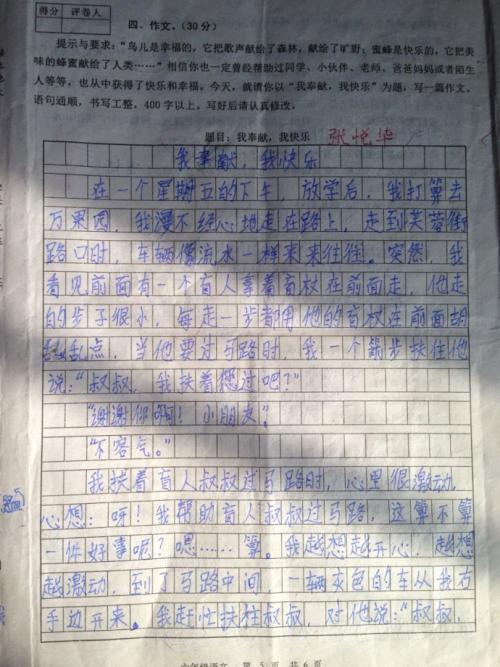 得分 评卷人
四、作文。(30分)
提示与要求:“鸟儿是幸福的,它把歌声献给了森林,献给了旷野;蜜蜂是快乐的,它把美
味的蜂蜜献给了人类……”相信你也一定曾经帮助过同学、小伙伴、老师、爸爸妈妈或者陌生
人等等,也从中获得了快乐和幸福。今天,就请你以“我奉献,我快乐”为题,写一篇作文。
语句通顺,书写工整,400字以上。写好后请认真修改。
题目:我奉献,我快乐 张悦华
我奉献,我快乐
在一个星期五的下午,放学后,我打算去
万果园,我漫不经心地走在路上,走到芙蓉街
路口时,车辆像流水一样来来往往。突然,我
看见前面有一个盲人拿着盲杖在前面走,他走
的步子很小,每走一步都用他的盲杖在前面胡
乱乱点,当他要过马路时,我一个箭步扶住他
说:“叔叔,我扶着您过吧?”
“谢谢你啊!小朋友”。
“不客气。”
我扶着盲人叔叔过马路时,心里很激动,
心想:呀!我帮助盲人叔叔过马路,这算不算
一件好事呢?嗯……算。我越想越开心,越想
越激动,到了马路中间,一辆灰色的车从我右
手边开来。我赶忙扶住叔叔,对他说:“叔叔,
六年级语文 第5页 共6页